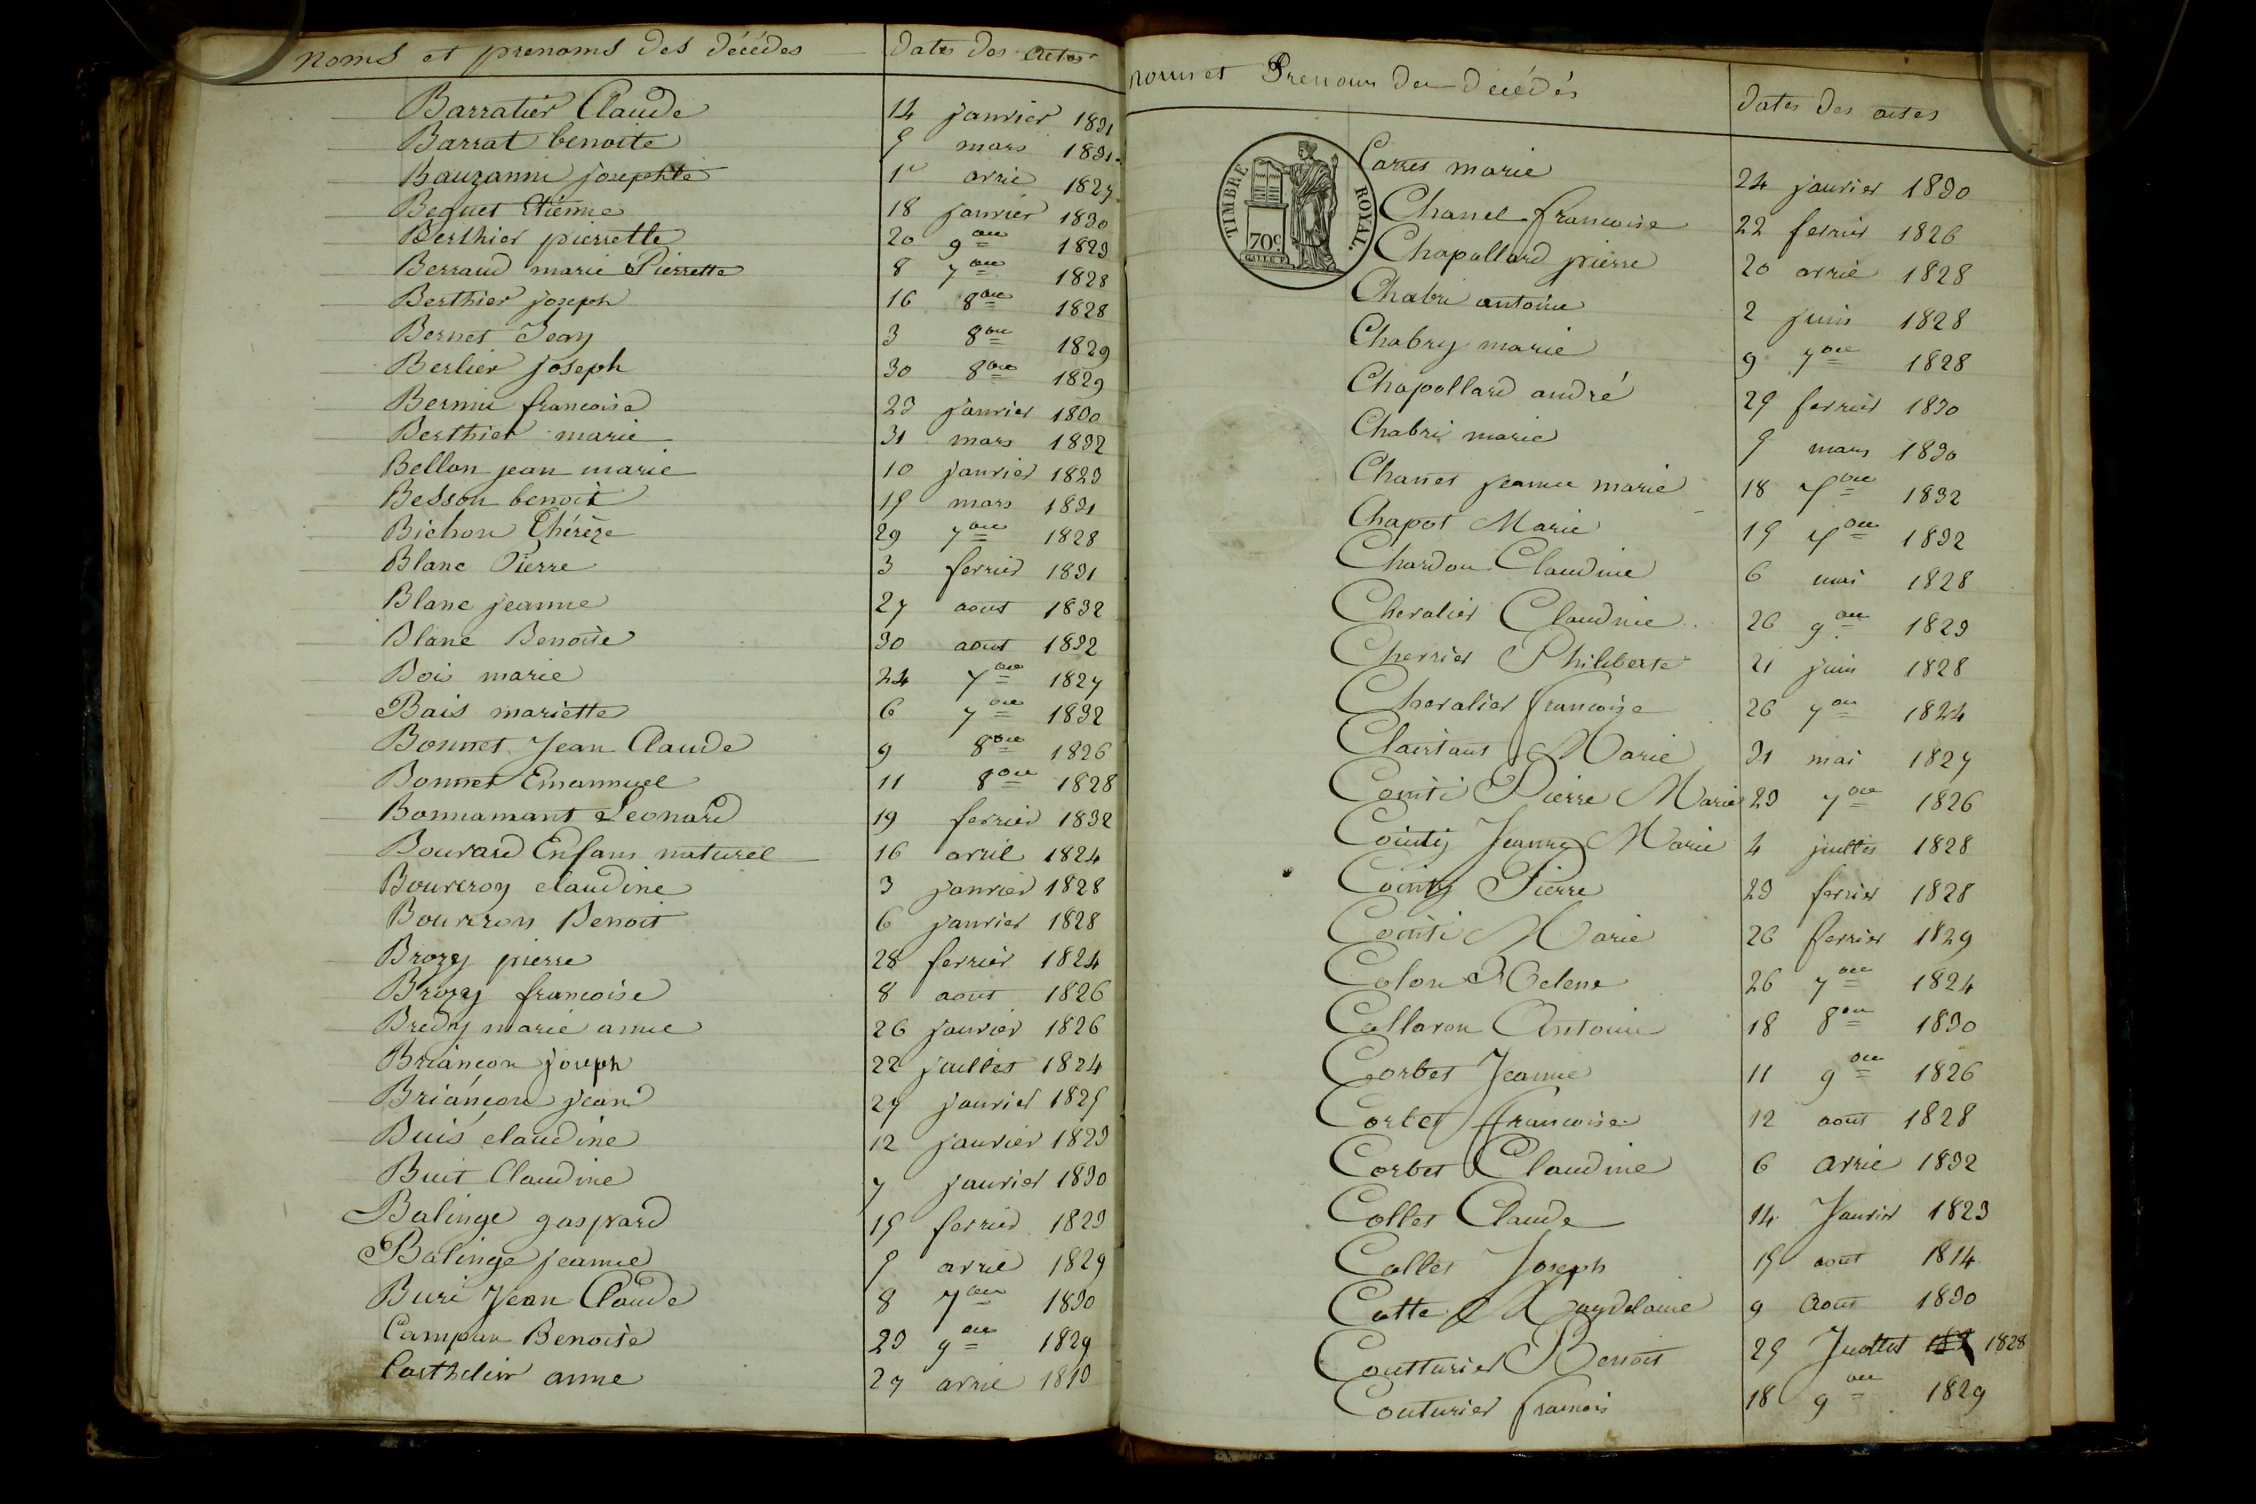 Noms et prenoms des décédes	Dates des actes
Barratier Claude	14 janvier 1831
Barrat benoite	5 mars 1831
Bauzanni josephte	1er avril 1827
Beguet Etienne	18 janvier 1830
Berthier pierrette	20 9bre 1823
Berraud marie Pierrette	8 7bre 1828
Berthier joseph	16 8bre 1828
Bernet Jean	3 8bre 1829
Berlier joseph	30 8bre 1829
francoise	23 janvier 1830
Berthier marie	31 mars 1832
Bellon jean marie	10 janvier 1823
Besson benoit	15 mars 1831
Bichon Thérèze	29 7bre 1828
Blanc Pierre	3 fevrier 1831
Blanc jeanne	27 aout 1832
Blanc Benoite	30 aout 1832
Bois marie	24 7bre 1827
Bais mariette	6 7bre 1832
Bonnet Jean Claude	9 8bre 1826
Bonnet Emannuel	11 8bre 1828
Bonnamant Leonard	19 fevrier 1832
Bouvard Enfans naturel	16 avril 1824
Bourcroy claudine	3 janvier 1828
Benoit	6 janvier 1828
Brozy pierre	28 fevrier 1824
Brozy francoise	8 aout 1826
Bredy marie anne	26 janvier 1826
Briançon joseph	22 juillet 1824
Briançon jean	27 janvier 1825
Buis claudine	12 janvier 1823
Buit Claudine	7 janvier 1830
Balinge gaspard	15 fevrier 1823
Balinge jeanne	5 avril 1829
Buri Jean Claude	8 7bre 1830
Campan Benoite	23 9bre 1829
anne	27 avril
noms et Prenoms des décédés	Dates des actes
TIMBRE ROYAL.
70c.
Carret marie	24 janvier 1830
Chanel francoise	22 fevrier 1826
Chapollard pierre	20 avril 1828
Chabri antoine	2 juin 1828
Chabry marie	9 7bre 1828
Chapollard andré	25 fevrier 1830
Chabri marie	5 mars 1830
Chanet jeanne marie	18 7bre 1832
Chapot Marie	15 7bre 1832
Chardon Claudine	6 mai 1828
Chevalier Claudine	26 9bre 1823
Cherrier Philiberte	21 juin 1828
Chevalier francoize	26 7bre 1824
Marie	31 mai 1827
Cointi Pierre Marie	23 7bre 1826
Cointy Jeanne Marie	4 juillet 1828
Cointy Pierre	23 fevrier 1828
Cointi Marie	26 fevrier 1829
Colon Helene	26 7bre 1824
Collaron Antoine	18 8bre 1830
Corbet Jeanne	11 9bre 1826
Corbet francoise	12 aout 1828
Corbet Claudine	6 avril 1832
Collet Claude	14 Janvier 1823
Collet Joseph	15 aout 1814
Cotte Magdelaine	9 Aout 1830
Coutturier Benoit	25 Juillet 1828
Couturier francois	18 9bre 1829